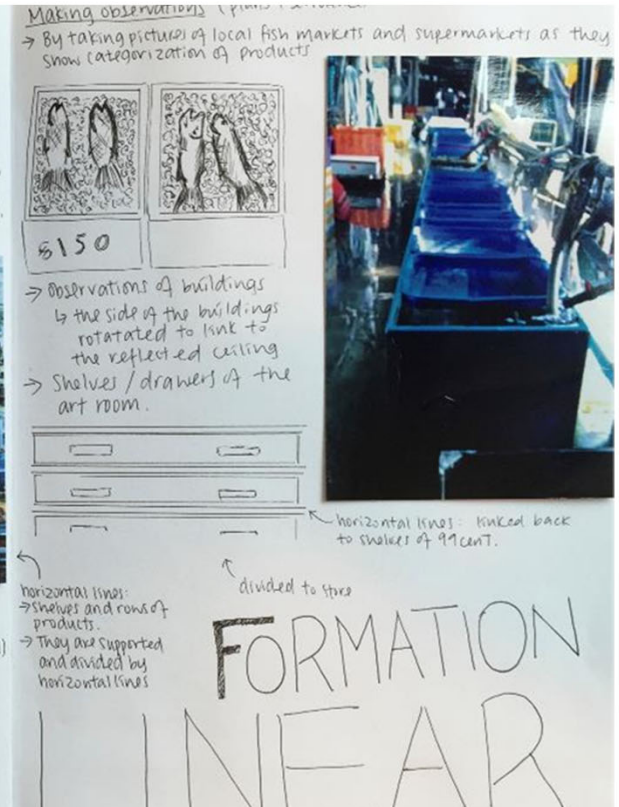 Making observations (plans
→ By taking pictures of local fish markets and supermarkets as they
show categorization of products
$150
→ Observations of buildings
↳ the side of the buildings
rotatated to link to
the reflected ceiling
→ Shelves / drawers of the
art room.
horizontal lines: linked back
to shelves of 99 cent.
divided to store
horizontal lines:
→ shelves and rows of
products.
→ They are supported
and divided by
horizontal lines
FORMATION
LINEAR